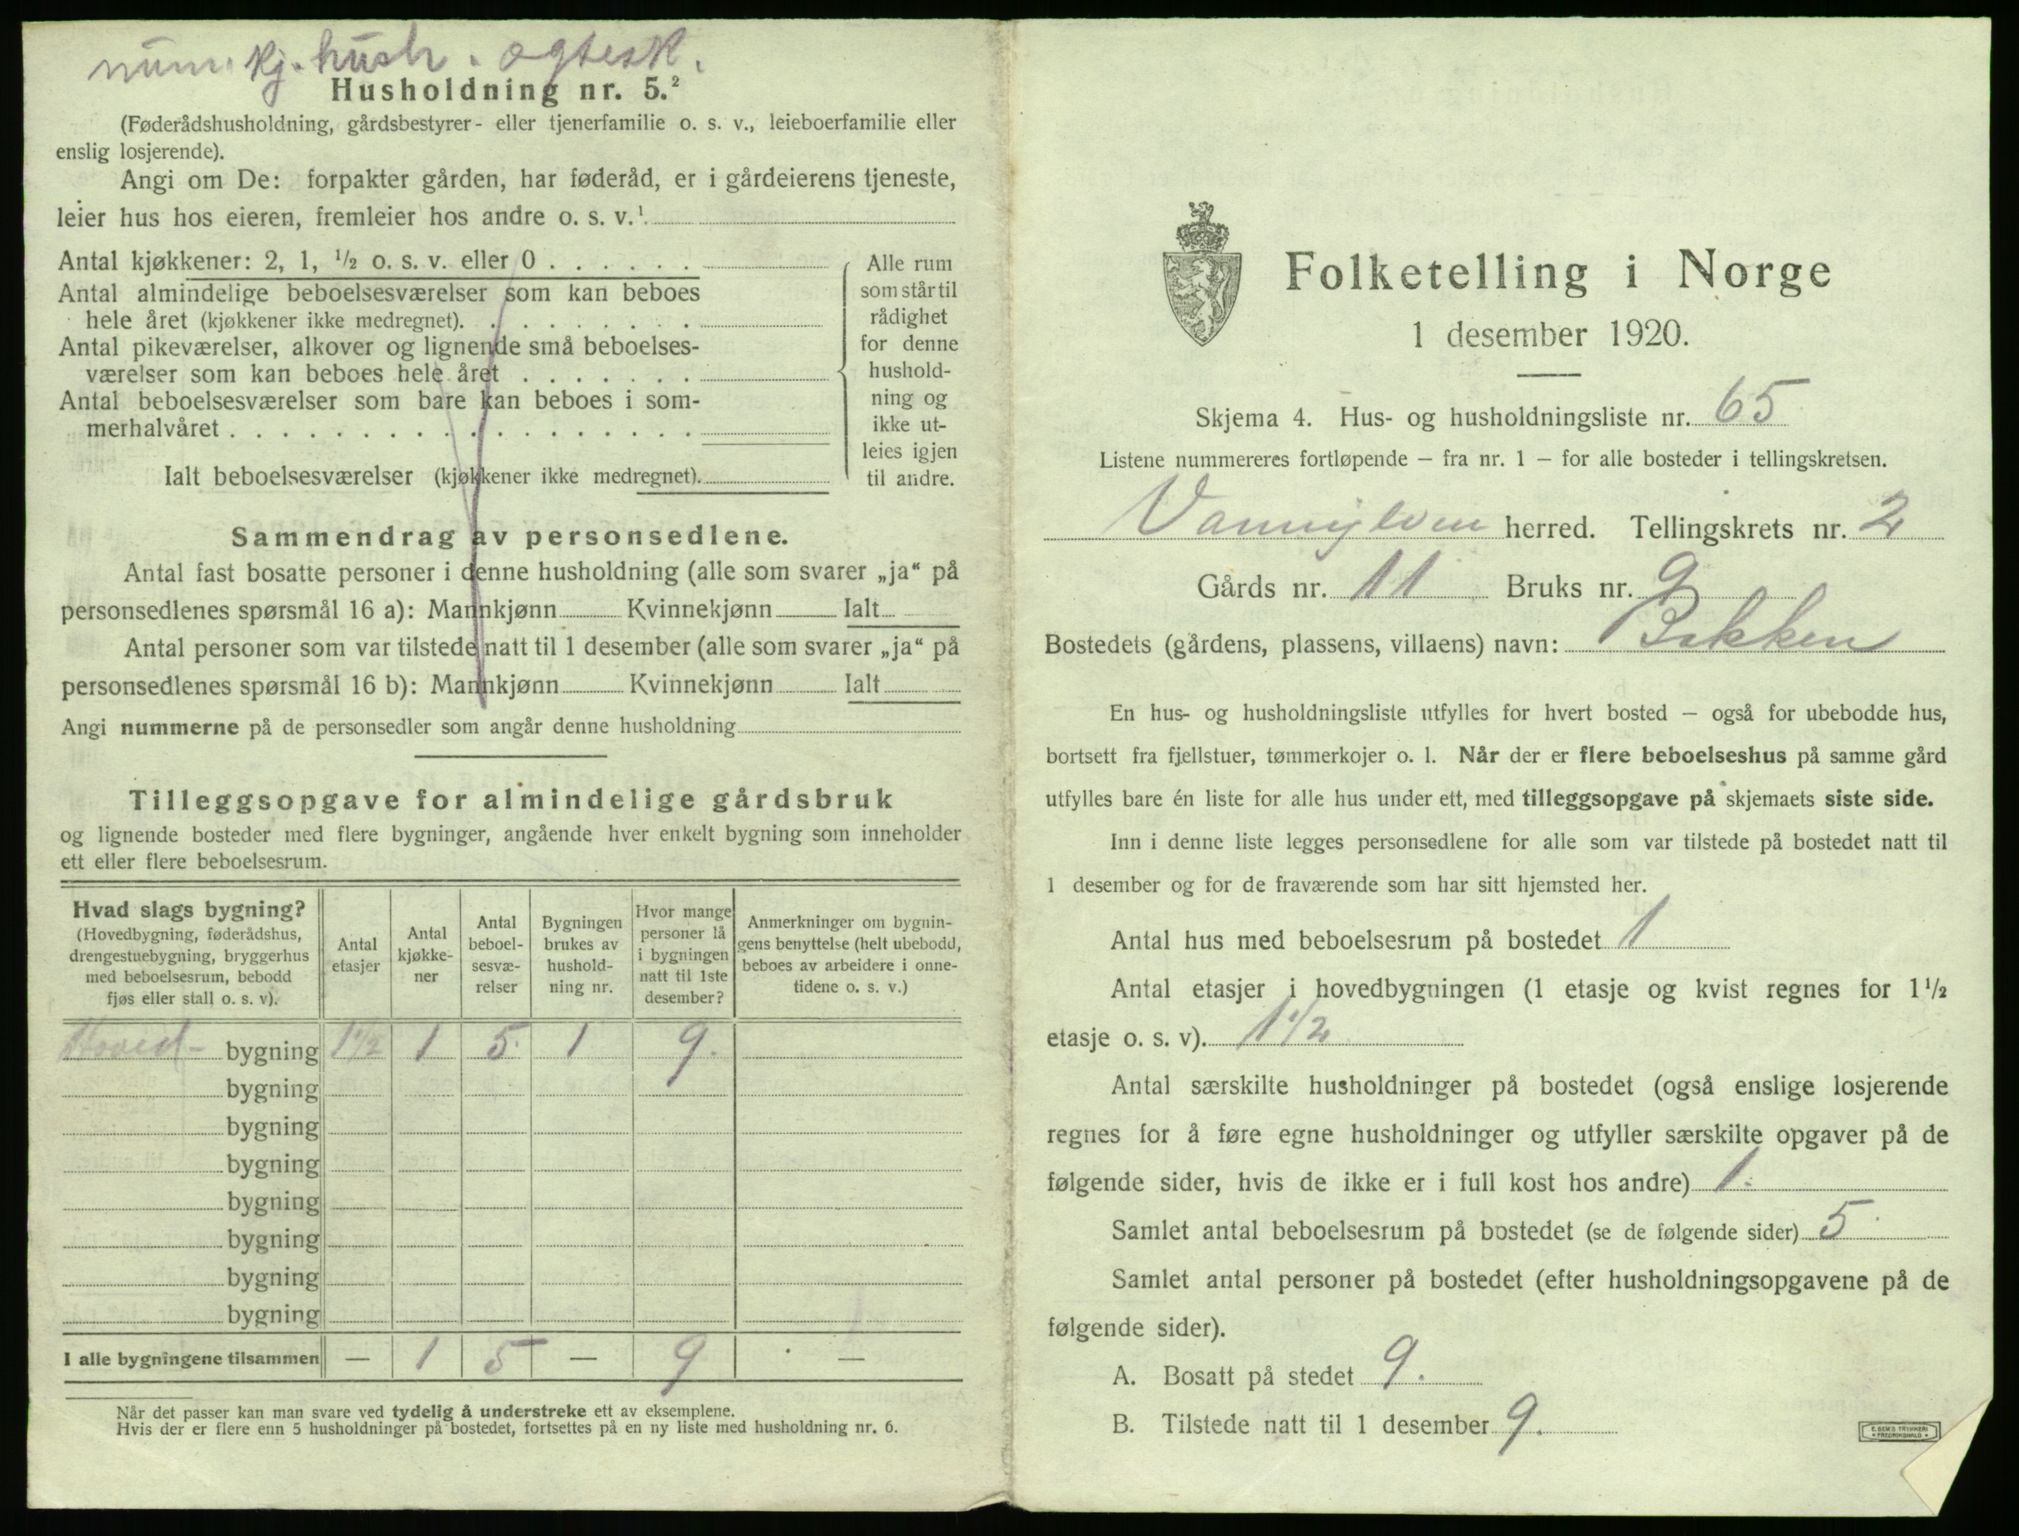 num. kj. hush. egtesk.
Husholdning nr. 5.²
(Føderådshusholdning, gårdsbestyrer- eller tjenerfamilie o. s. v., leieboerfamilie eller
enslig losjerende).
Angi om De: forpakter gården, har føderåd, er i gårdeierens tjeneste,
leier hus hos eieren, fremleier hos andre o. s. v.¹
Antal kjøkkener: 2, 1, ½ o. s. v. eller 0 . . . . . .
Antal almindelige beboelsesværelser som kan beboes
hele året (kjøkkener ikke medregnet). . . . . . . . .
Antal pikeværelser, alkover og lignende små beboelses-
værelser som kan beboes hele året . . . . . . .
Antal beboelsesværelser som bare kan beboes i som-
merhalvåret . . . . . . . . . . . . . . . . . .
Ialt beboelsesværelser (kjøkkener ikke medregnet).
Alle rum
som står til
rådighet
for denne
hushold-
ning og
ikke ut-
leies igjen
til andre.
Sammendrag av personsedlene.
Antal fast bosatte personer i denne husholdning (alle som svarer „ja“ på
personsedlenes spørsmål 16 a): Mannkjønn Kvinnekjønn Ialt
Antal personer som var tilstede natt til 1 desember (alle som svarer „ja“ på
personsedlenes spørsmål 16 b): Mannkjønn Kvinnekjønn Ialt
Angi nummerne på de personsedler som angår denne husholdning
Tilleggsopgave for almindelige gårdsbruk
og lignende bosteder med flere bygninger, angående hver enkelt bygning som inneholder
ett eller flere beboelsesrum.
Hvad slags bygning?
(Hovedbygning, føderådshus,
drengestuebygning, bryggerhus
med beboelsesrum, bebodd
fjøs eller stall o. s. v).
Antal
etasjer
Antal
kjøkke-
ner
Antal
beboel-
sesvæ-
relser
Bygningen
brukes av
hushold-
ning nr.
Hvor mange
personer lå
i bygningen
natt til 1ste
desember?
Anmerkninger om bygnin-
gens benyttelse (helt ubebodd,
beboes av arbeidere i onne-
tidene o. s. v.)
Hoved- bygning 1½ 1 5. 1 9.
bygning
bygning
bygning
bygning
bygning
bygning
bygning
I alle bygningene tilsammen — 1 5 — 9 —
Når det passer kan man svare ved tydelig å understreke ett av eksemplene.
Hvis der er flere enn 5 husholdninger på bostedet, fortsettes på en ny liste med husholdning nr. 6.
Folketelling i Norge
1 desember 1920.
Skjema 4. Hus- og husholdningsliste nr. 65
Listene nummereres fortløpende – fra nr. 1 – for alle bosteder i tellingskretsen.
Vannylven herred. Tellingskrets nr. 2
Gårds nr. 11 Bruks nr. 9
Bostedets (gårdens, plassens, villaens) navn: Bakken
En hus- og husholdningsliste utfylles for hvert bosted – også for ubebodde hus,
bortsett fra fjellstuer, tømmerkojer o. l. Når der er flere beboelseshus på samme gård
utfylles bare én liste for alle hus under ett, med tilleggsopgave på skjemaets siste side.
Inn i denne liste legges personsedlene for alle som var tilstede på bostedet natt til
1 desember og for de fraværende som har sitt hjemsted her.
Antal hus med beboelsesrum på bostedet 1
Antal etasjer i hovedbygningen (1 etasje og kvist regnes for 1½
etasje o. s. v). 1½
Antal særskilte husholdninger på bostedet (også enslige losjerende
regnes for å føre egne husholdninger og utfyller særskilte opgaver på de
følgende sider, hvis de ikke er i full kost hos andre) 1.
Samlet antal beboelsesrum på bostedet (se de følgende sider) 5.
Samlet antal personer på bostedet (efter husholdningsopgavene på de
følgende sider).
A. Bosatt på stedet 9.
B. Tilstede natt til 1 desember 9.
E. SEM'S TRYKKERI
FREDRIKSHALD